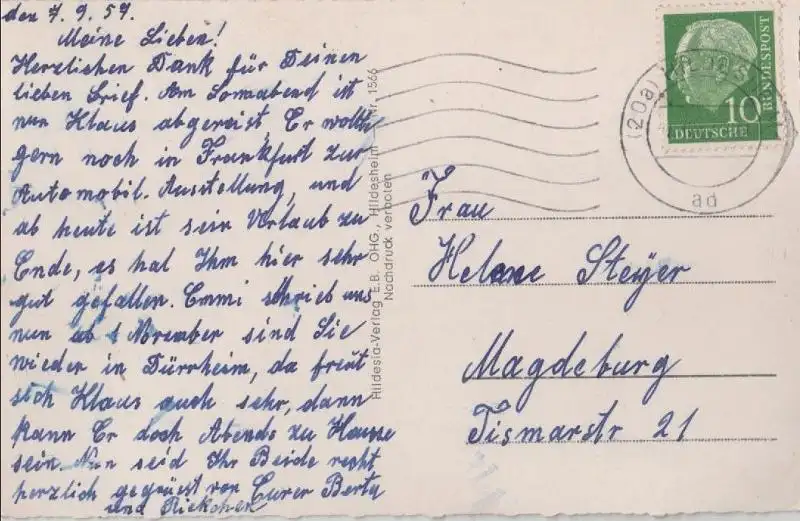 den 7.9.57.
Meine Lieben!
Herzlichen Dank für Deinen
lieben Brief. Am Sonnabend ist
nun Klaus abgereist, Er wollte
gern noch in Frankfurt zur
Automobil. Ausstellung, und
ab heute ist sein Urlaub zu
Ende, es hat Ihm hier sehr
gut gefallen. Emmi schrieb uns
nun ab 1 November sind Sie
wieder in Dürrheim, da freut
sich Klaus auch sehr, dann
kann Er doch Abends zu Hause
sein. Nun seid Ihr Beide recht
herzlich gegrüest von Eurer Berta
und Riekchen
Hildesia-Verlag E.B. OHG., Hildesheim Nr. 1566
Nachdruck verboten
10
DEUTSCHE
BUNDESPOST
(20a)
ad
Frau
Helene Steyer
Magdeburg
Tismarstr 21